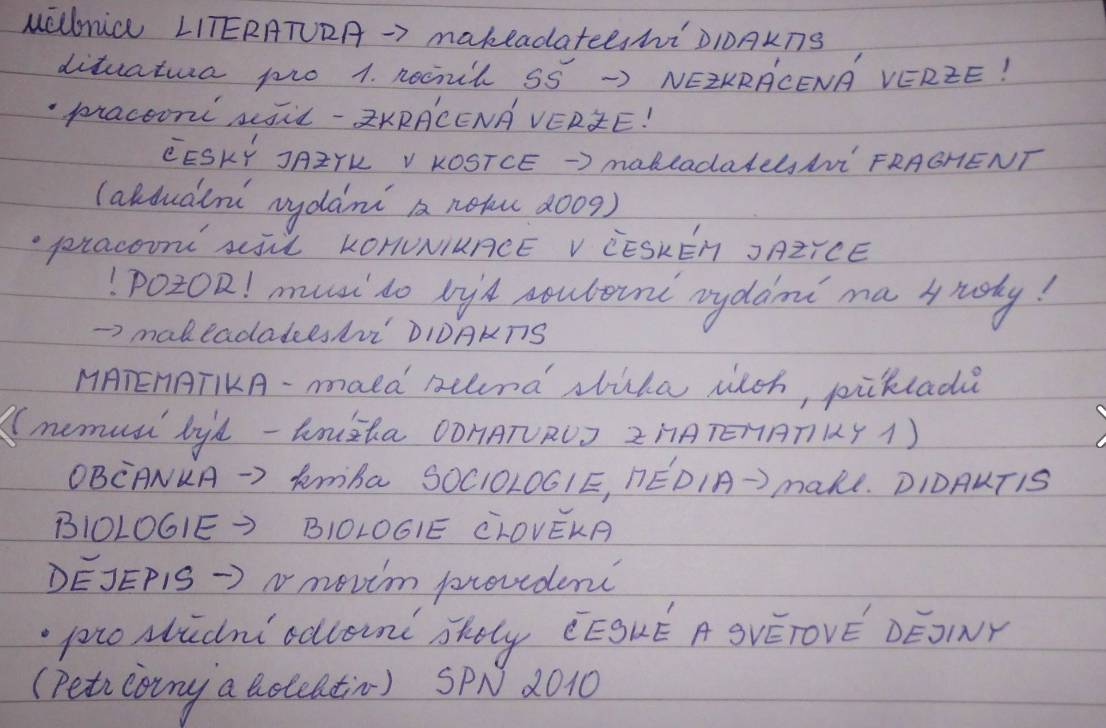 učebnice LITERATURA → nakladatelství DIDAKTIS
literatura pro 1. ročník SŠ → NEZKRÁCENÁ VERZE!
• pracovní sešit - ZKRÁCENÁ VERZE!
ČESKÝ JAZYK V KOSTCE → nakladatelství FRAGMENT
(aktuální vydání z roku 2009)
• pracovní sešit KOMUNIKACE V ČESKÉM JAZYCE
!POZOR! musí to být souborné vydání na 4 roky!
→ nakladatelství DIDAKTIS
MATEMATIKA - malá zelená sbírka úloh, příkladů
(nemusí být - knížka ODMATURUJ Z MATEMATIKY 1)
OBČANKA → kniha SOCIOLOGIE, MÉDIA → nakl. DIDAKTIS
BIOLOGIE → BIOLOGIE ČLOVĚKA
DĚJEPIS → v novém provedení
• pro střední odborné školy ČESKÉ A SVĚTOVÉ DĚJINY
(Petr Čorný a kolektiv) SPN 2010